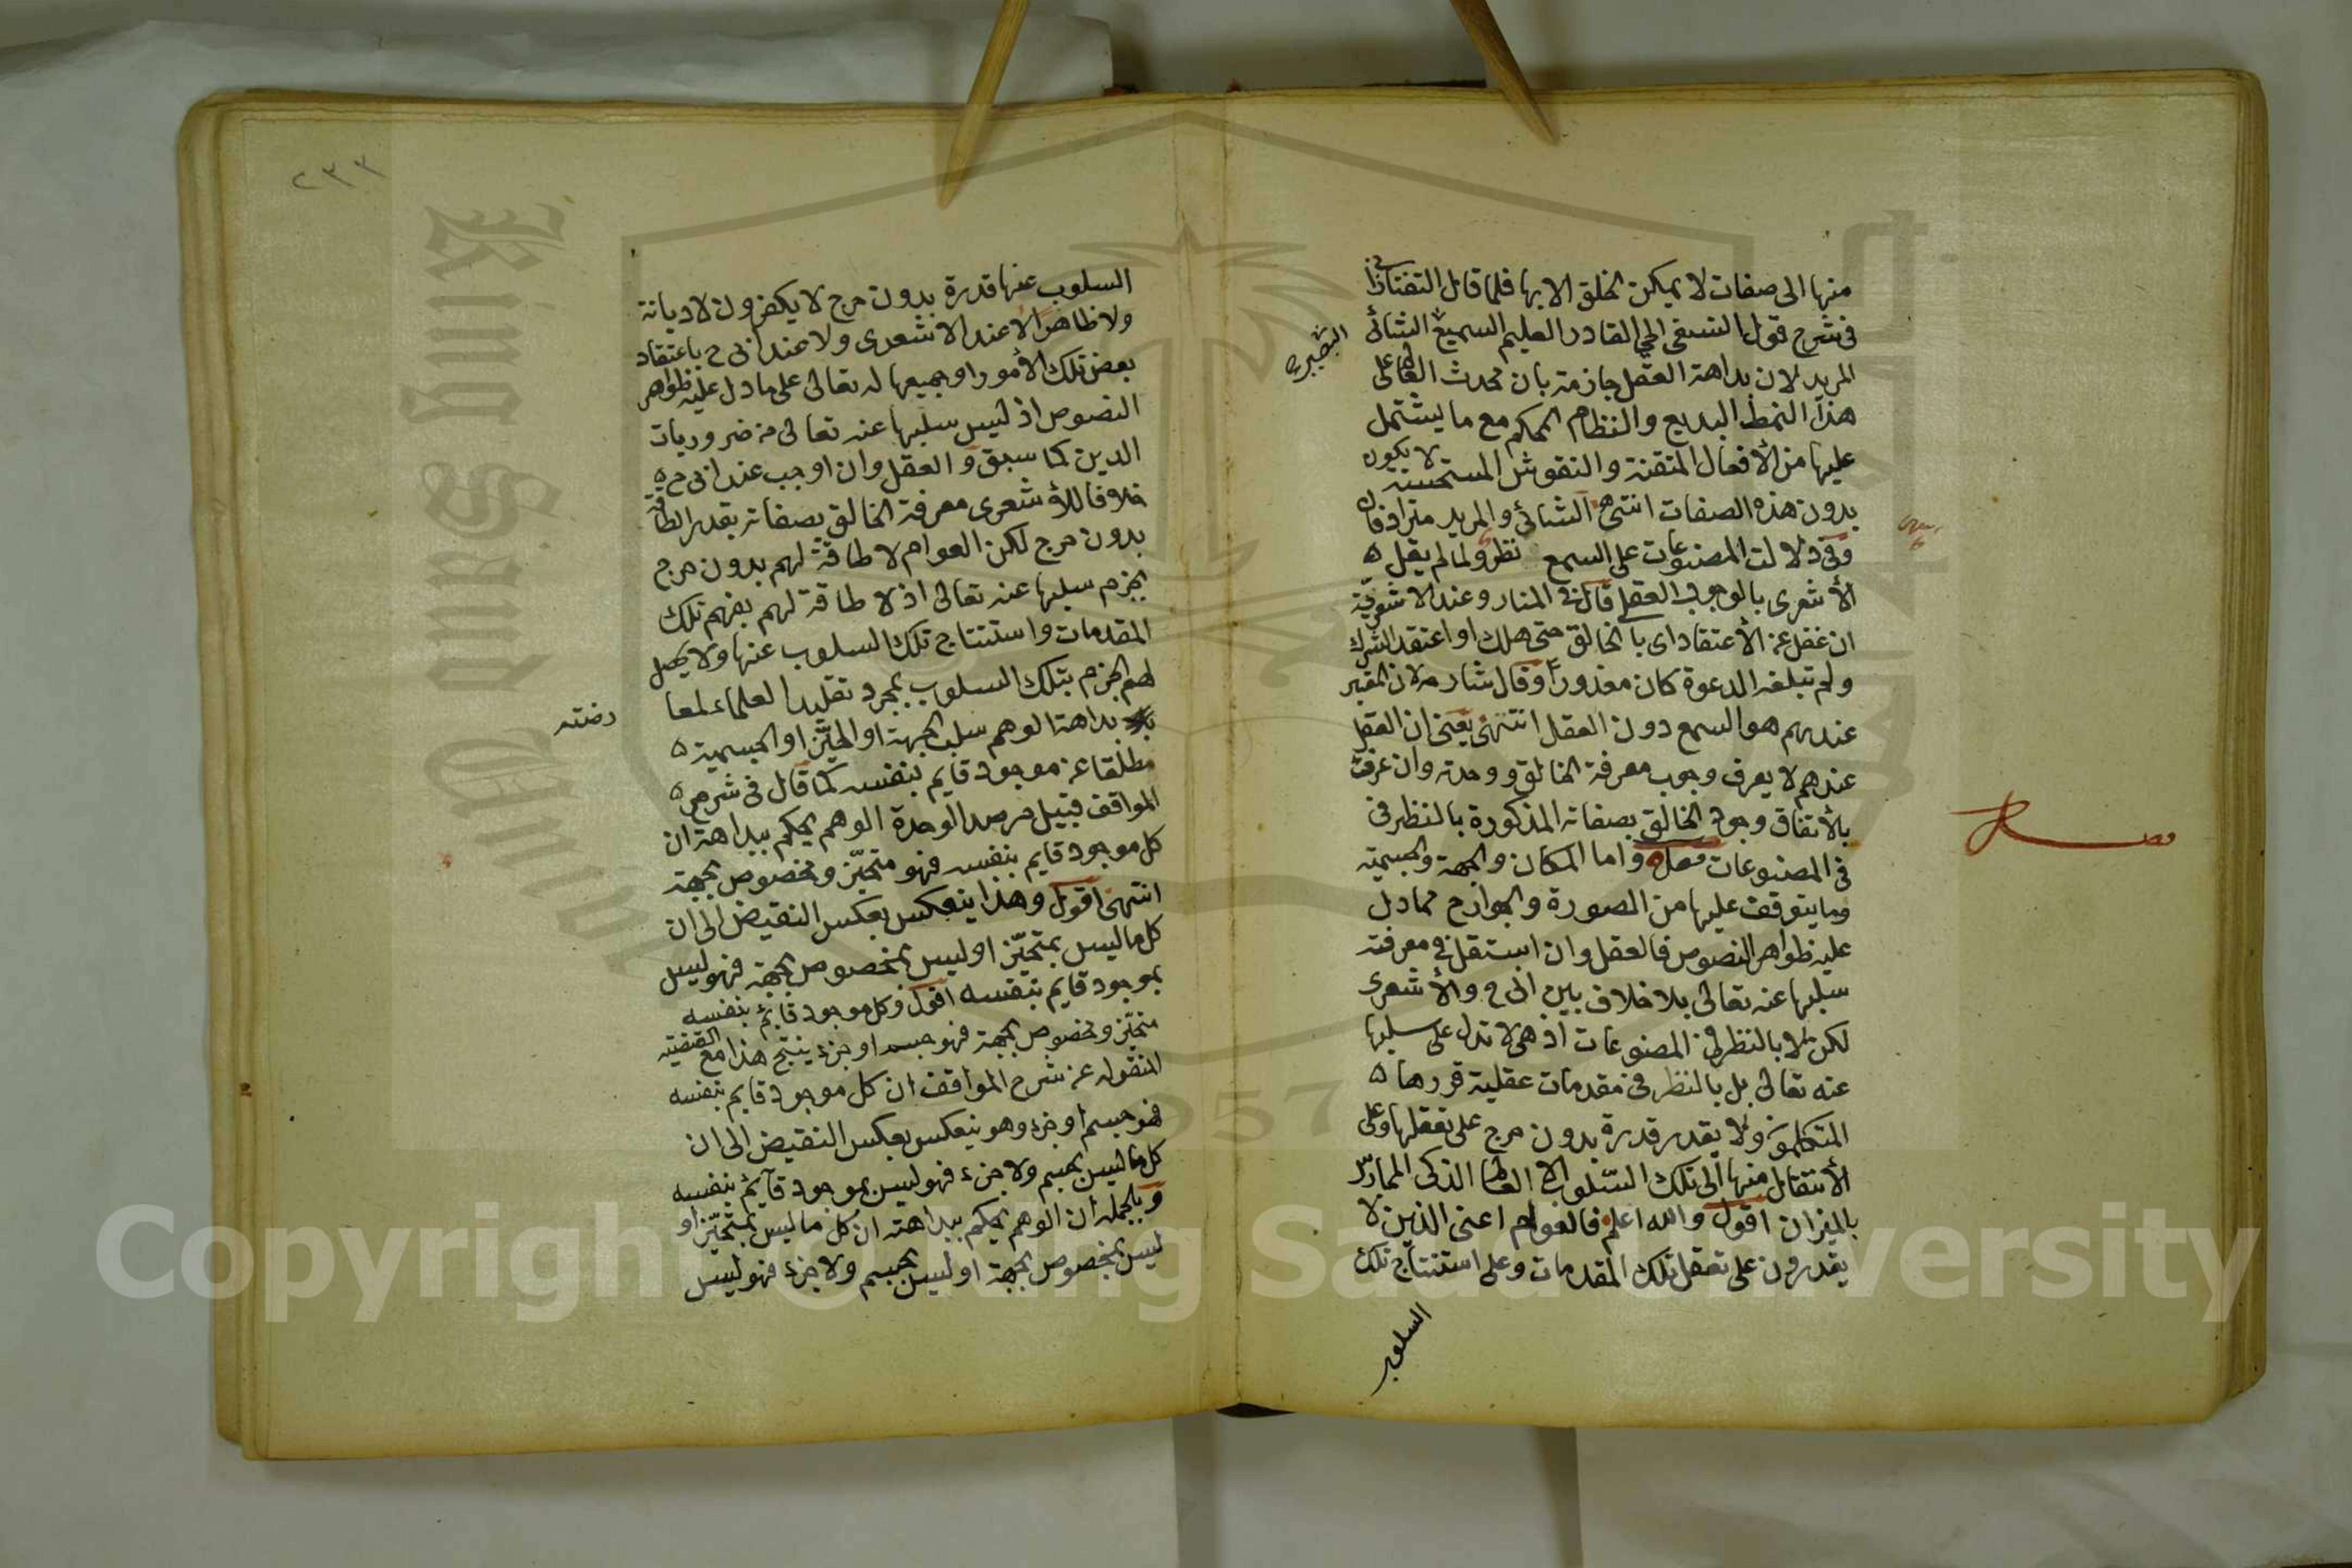 منها الى صفات لا يمكن الخلق الا بها فلما قال التفتازانى
فى شرح قول النسفى الحي القادر العليم السميع الشائى
البصير
المريد لان بداهة العقل جازمة بان محدث العالم على
هذا النمط البديع والنظام المحكم مع ما يشتمل
عليها من الأفعال المتقنة والنقوش المستحسنة لا يكون
بدون هذه الصفات انتهى الشائى والمريد مترادفان
وفى دلالت المصنوعات على السمع نظر ولما لم يقل
الأشعرى بالوجوب العقلى قال فى المنار وعند الاشعرية
ان غفل عن الأعتقاد اى بالخالق حتى هلك او اعتقد الشرك
ولم تبلغه الدعوة كان معذورا وقال شارحه لان المعتبر
عندهم هو السمع دون العقل انتهى يعنى ان العقل
عندهم لا يعرف وجوب معرفة الخالق ووحدته وان عرفت
بالأتفاق وجود الخالق بصفاته المذكورة بالنظر فى
فى المصنوعات فصل واما المكان والجهة والجسمية
وما يتوقف عليها من الصورة والجوارح مما دل
عليه ظواهر النصوص فالعقل وان استقل فى معرفته
سلبها عنه تعالى بلا خلاف بين ابى ح والأشعرى
لكن لا بالنظر فى المصنوعات اذ هى لا تدل على سلبها
عنه تعالى بل بالنظر فى مقدمات عقلية قررها
المتكلمون ولا يقدر قدرة بدون حرج على تعقلها وعلى
الأنتقال منها الى تلك السلوب الا العالم الذكى الممارس
بالميزان اقول والله اعلم فالعوام اعنى الذين لا
يقدرون على تعقل تلك المقدمات وعلى استنتاج تلك
السلوب
فصل
٢٣٣
السلوب عنها قدرة بدون حرج لا يكفرون لا ديانة
ولا ظاهرا لا عند الاشعرى ولا عند ابى ح باعتقاد
بعض تلك الأمور او جميعها له تعالى على ما دل عليه ظواهر
النصوص اذ ليس سلبها عنه تعالى من ضروريات
الدين كما سبق و العقل وان اوجب عند ابى ح
خلافا للأشعرى معرفة الخالق بصفاته بقدر الطاقة
بدون حرج لكن العوام لا طاقة لهم بدون حرج
بجزم سلبها عنه تعالى اذ لا طاقة لهم بفهم تلك
المقدمات واستنتاج تلك السلوب عنها ولا يحصل
لهم الجزم بتلك السلوب بمجرد تقليد العلماء لمعا
رضته
بداهة الوهم سلب الجهة او الحيّز او الجسمية
مطلقا عن موجود قايم بنفسه كما قال فى شرح
المواقف قبيل مرصد الوحدة الوهم يحكم ببداهة ان
كل موجود قايم بنفسه فهو متحيّز ومخصوص بجهة
انتهى اقول وهذا ينعكس بعكس النقيض الى ان
كل ما ليس بمتحيّز او ليس بمخصوص بجهة فهو ليس
بموجود قايم بنفسه اقول وكل موجود قايم بنفسه
متحيّز ومخصوص بجهة فهو جسم او جزء ينتج هذا مع القضية
المنقوله عن شرح المواقف ان كل موجود قايم بنفسه
فهو جسم او جزء وهو ينعكس بعكس النقيض الى ان
كل ما ليس بجسم ولا جزء فهو ليس بموجود قايم بنفسه
وبالجملة ان الوهم يحكم ببداهته ان كل ما ليس بمتحيّز او
ليس بمخصوص بجهة او ليس بجسم ولا جزء فهو ليس
King Saud University
1957
Copyright © King Saud University